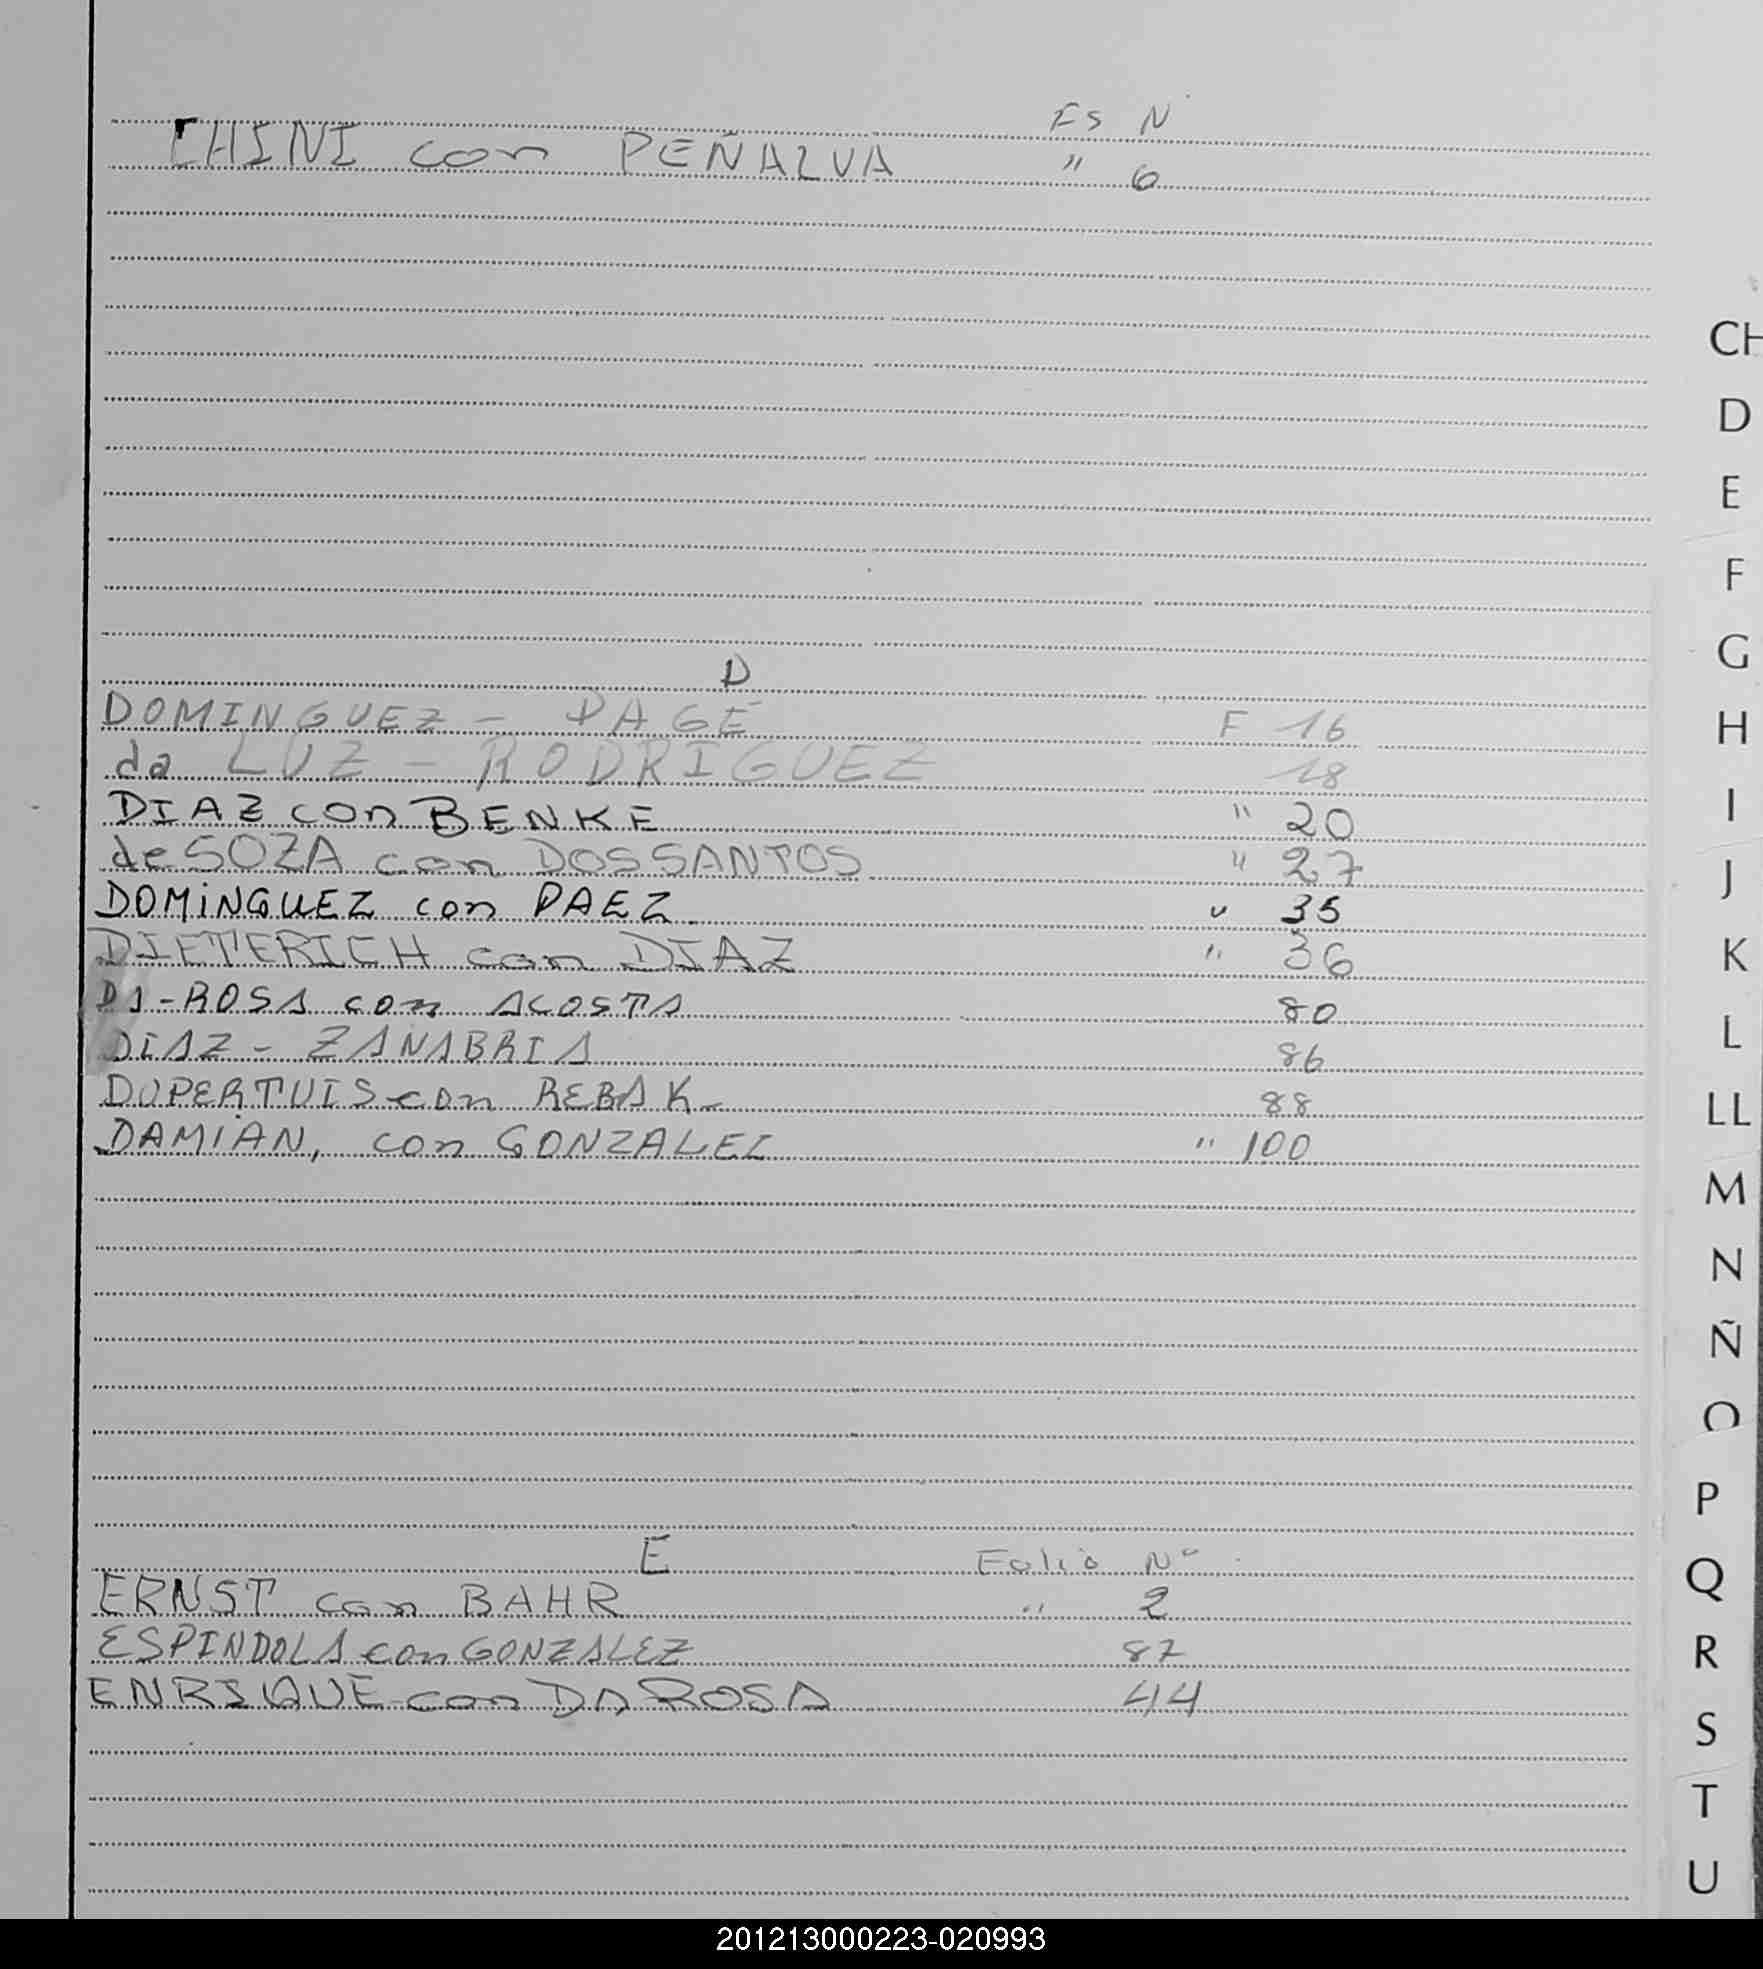 Fs N
CHINI con PEÑALVA " 6
D
DOMINGUEZ - PAGÉ F 16
da LUZ - RODRIGUEZ 18
DIAZ con BENKE " 20
de SOZA con DOS SANTOS " 27
DOMINGUEZ con PAEZ " 35
DIETERICH con DIAZ " 36
DI-ROSA con ACOSTA 80
DIAZ - ZANABRIA 86
DUPERTUIS con REBAK- 88
DAMIAN, con GONZALEZ " 100
E Folio Nº
ERNST con BAHR " 2
ESPINDOLA con GONZALEZ 87
ENRIQUE con DA ROSA 44
CH
D
E
F
G
H
I
J
K
L
LL
M
N
Ñ
O
P
Q
R
S
T
U
201213000223-020993